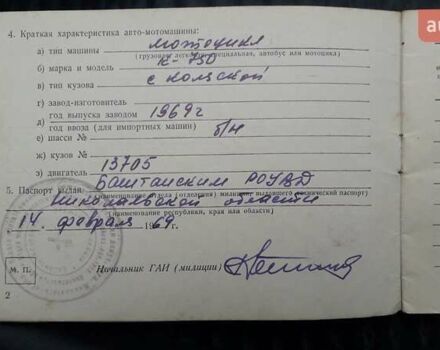 4. Краткая характеристика авто-мотомашины:
а) тип машины мотоцикл
(грузовой, легковой, специальная, автобус или мотоцикл)
б) марка и модель К-750
в) тип кузова с коляской
г) завод-изготовитель
д) год выпуска заводом 1969 г
год ввоза (для импортных машин)
е) шасси № б/н
ж) кузов №
з) двигатель 13705
5. Паспорт выдан Баштанским РОУВД
(наименование отдела (отделения) милиции, выдавшего технический паспорт)
Николаевской области
(наименование республики, края или области)
14 февраля 1969 г.
М. П.
Начальник ГАИ (милиции)
2